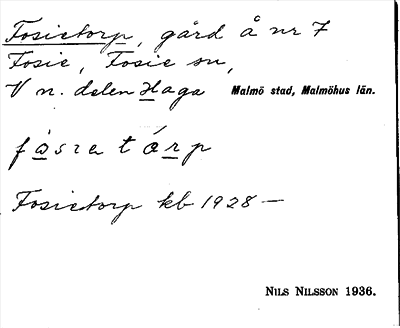 Fosietorp, gård å nr 7
Fosie, Fosie sn,
V n. delen Haga Malmö stad, Malmöhus län.
Fosietorp kb 1928 —
NILS NILSSON 1936.